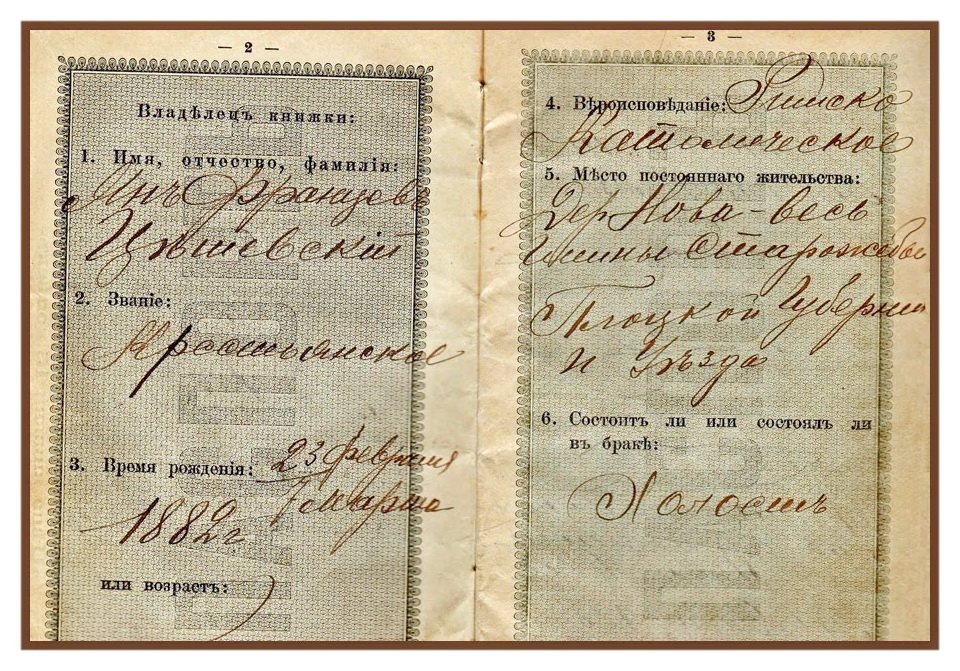 — 2 —
Владѣлецъ книжки:
1. Имя, отчество, фамилія:
Янъ Францевъ
Цѣшевскій
2. Званіе:
Крестьянское
3. Время рожденія: 23 февраля
7 марта
1882 г
или возрастъ:
— 3 —
4. Вѣроисповѣданіе: Римско
Католическое
5. Мѣсто постояннаго жительства:
Дер Нова-весь
Гмины Старожебы
Плоцкой Губерніи
и Уѣзда
6. Состоитъ ли или состоялъ ли
въ бракѣ:
Холостъ